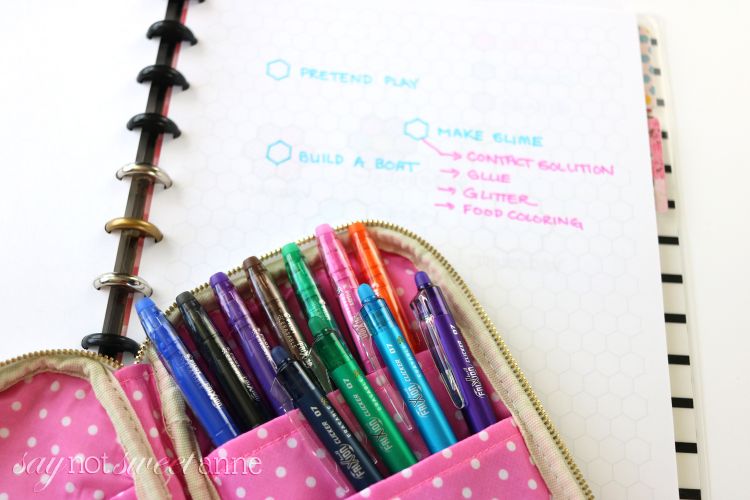 PRETEND PLAY
MAKE SLIME
→ CONTACT SOLUTION
BUILD A BOAT
→ GLUE
→ GLITTER
→ FOOD COLORING
FRIXION CLICKER 07
FRIXION CLICKER 07
FRIXION CLICKER 07
FRIXION CLICKER 07
say not sweet anne